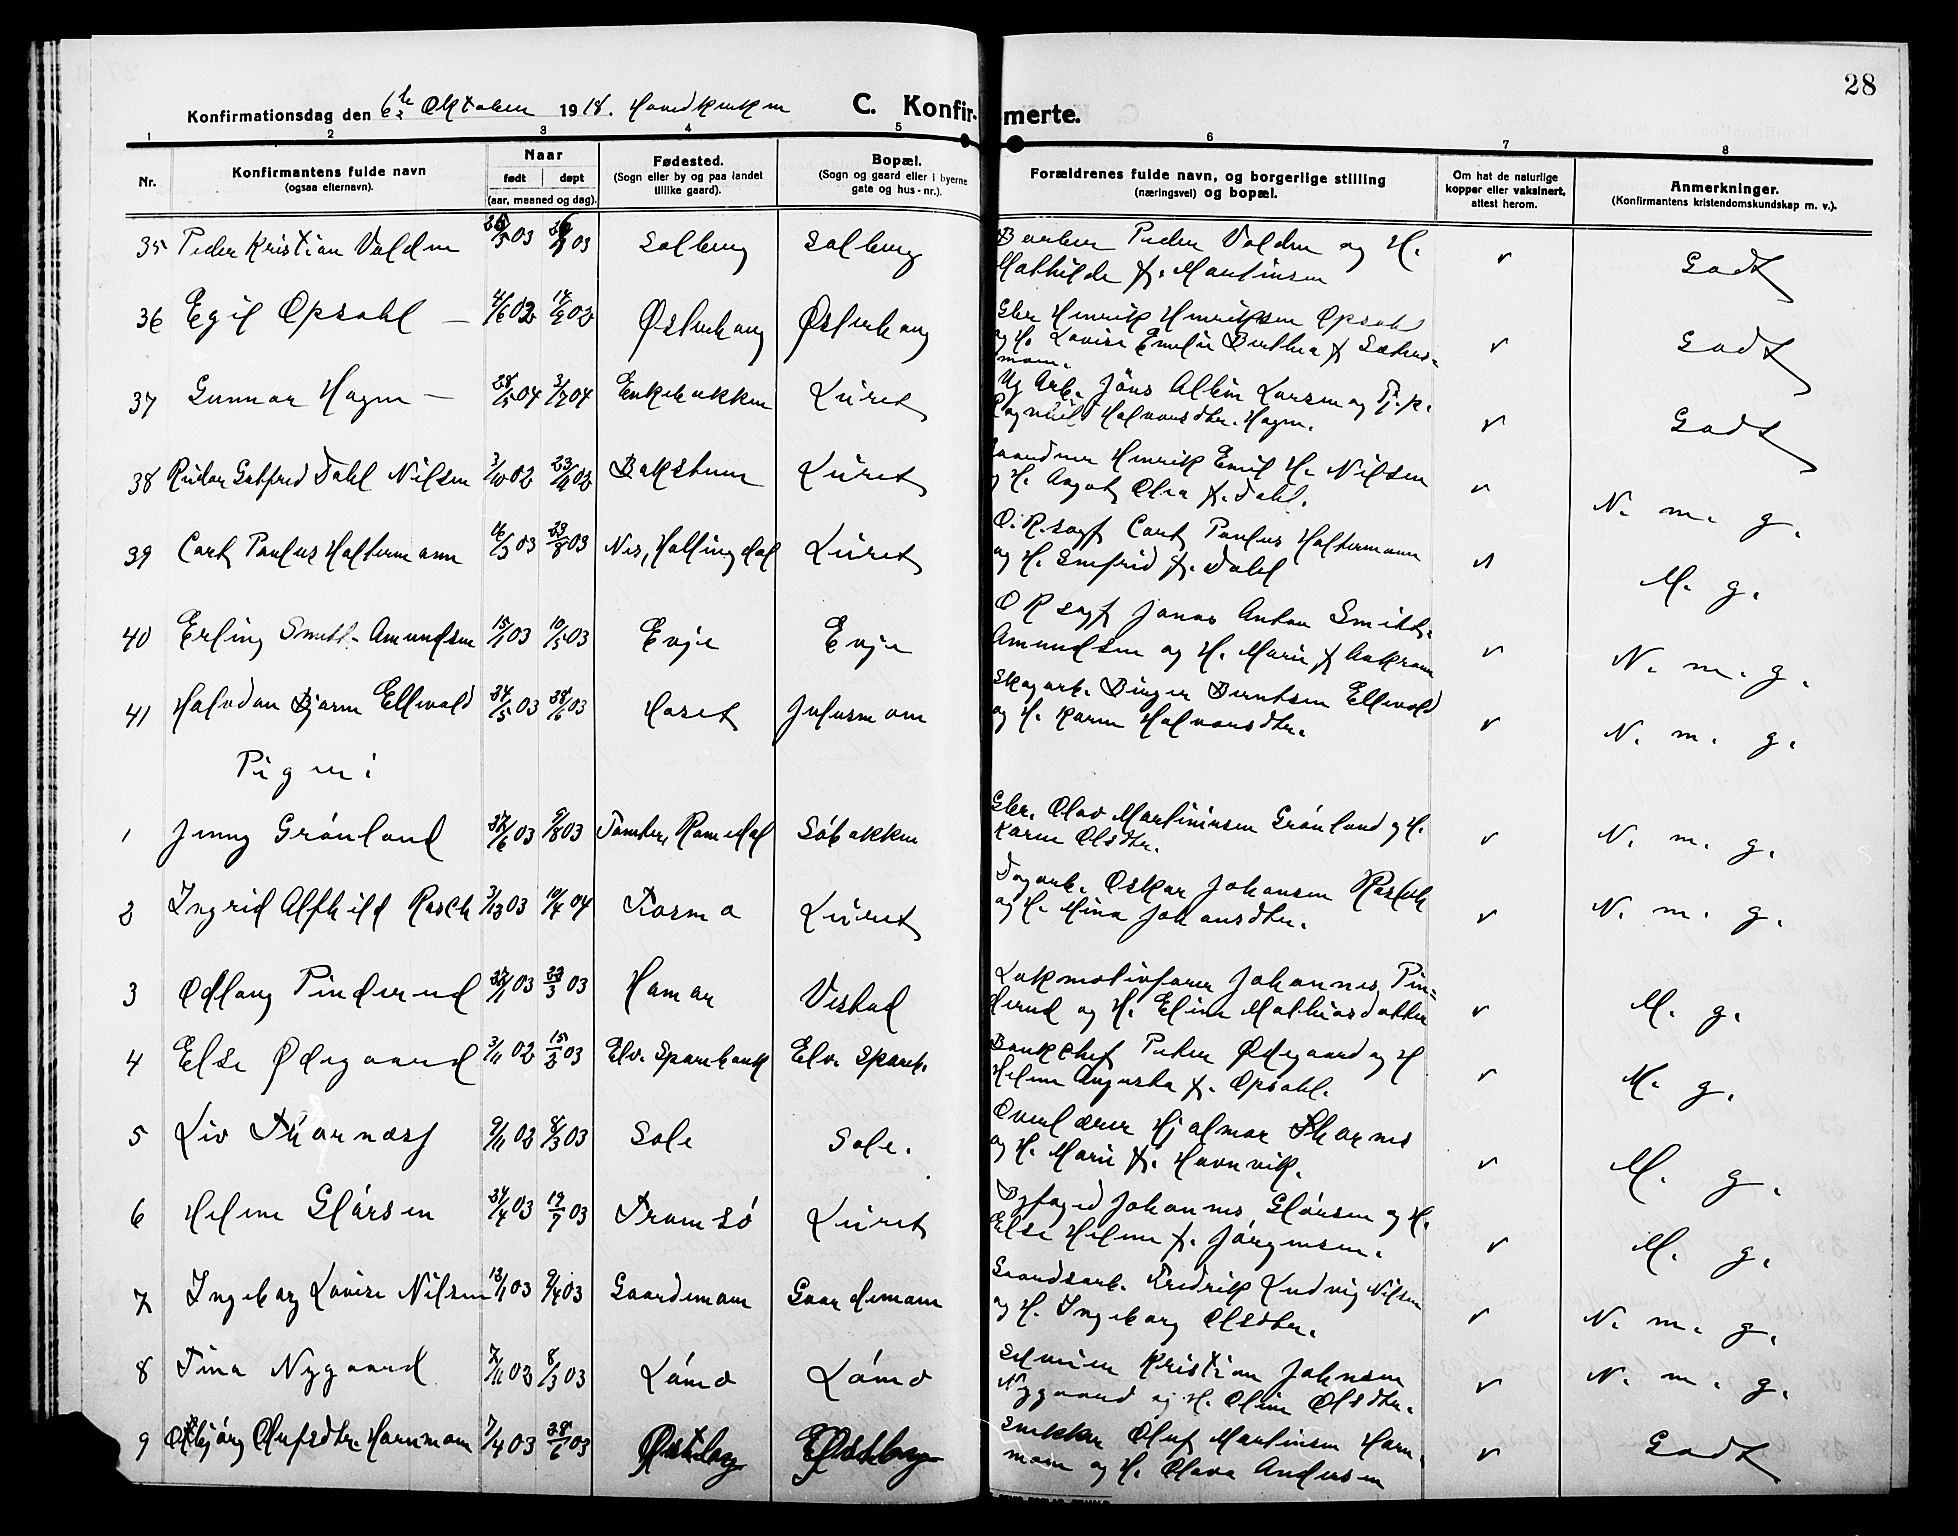 28
Konfirmationsdag den 6te Oktober 1918. Hovedkirken
C. Konfirmerte.
1 2 3 4 5 6 7 8
Nr.
Konfirmantens fulde navn
(ogsaa efternavn).
Naar
født døpt
(aar, maaned og dag).
Fødested.
(Sogn eller by og paa landet
tillike gaard).
Bopæl.
(Sogn og gaard eller i byerne
gate og hus-nr.).
Forældrenes fulde navn, og borgerlige stilling
(næringsvei) og bopæl.
Om hat de naturlige
kopper eller vaksinert,
attest herom.
Anmerkninger.
(Konfirmantens kristendomskundskap m. v.).
35 Peder Kristian Volden 03 03 Solberg Solberg Barber Peder Volden og H.
Mathilde f. Martinsen v Godt
36 Egil Opsahl — 4/6 02 02 Østerhaug Østerhaug Gbr Henrik Henriksen Opsahl
og H. Lovise Emelie Berthea f Sæters-
moen. v Godt
37 Gunnar Hagen — 28/5 04 3/7 04 Enkebakken Lüret Ug Arb. Jöns Albin Larsen og Pj. k.
Ragnhild Halvorsdtr. Hagen. v Godt
38 Reidar Gotfred Dahl Nilsen 3/10 02 23/11 02 Bakstuen Lüret Henrik Emil H. Nilsen
og H. Aagot Olea f. Dahl. v N. m. g.
39 Carl Paulus Haltermann 16/5 03 23/8 03 Nes, Hallingdal Lüret O.R.sagf Carl Paulus Haltermann
og H. Smefrid f. Dahl v M. g.
40 Erling Smith-Amundsen 15/1 03 10/5 03 Evje Evje O R sagf Jonas Anton Smith-
Amundsen og H. Marie f Aakrann v N. m. g.
41 Halvdan Bjarne Ellevold 24/5 03 28/6 03 Haset Julusmoen Skogarb. Birger Berntsen Ellevold
og H. Karen Halvorsdtr. v N. m. g.
Piger:
1 Jenny Grönland 27/6 03 9/8 03 Tomter, Romedal Söbakken Gbr. Olav Martiniusen Grönland og H.
Karen Olsdtr. v N. m. g.
2 Ingrid Alfhild Rasch 3/12 03 10/4 04 Tosmo Lüret Dagarb. Oskar Johansen Rasch
og H. Mina Johansdtr. v N. m. g.
3 Odlaug Pinderud 27/1 03 22/3 03 Hamar Vestad Lokmotivfører Johannes Pin-
derud og H. Eline Mathiasdatter v M. g.
4 Else Ødegaard 3/11 02 15/2 03 Elv. Sparebank Elv. Spareb. Bankchef Peder Ødegaard og H
Helene Augusta f. Opsahl. v M. g.
5 Liv Thornæs 9/11 02 8/3 03 Sole Sole. Overlærer Hjalmar Thornes
og H. Marie f. Havnvik. v M. g.
6 Helene Glörsen 24/4 03 19/7 03 Tromsö Lüret Byfoged Johannes Glörsen og H.
Else Helene f. Jörgensen. v M. g.
7 Ingeborg Lovise Nilsen 13/1 03 9/4 03 Gaardermoen Gaardermoen Gaardsarb. Fredrik Ludvig Nilsen
og H. Ingeborg Olsdtr. v N. m. g.
8 Tina Nygaard 7/11 02 8/3 03 Lömo Lömo Kristian Johnsen
Nygaard og H. Oline Olsdtr. v N. m. g.
9 Olufsdtr. Hornmoen 7/4 03 28/6 03 Østeby Østeby Snekker Oluf Martinsen Horn-
moen og H. Olava Andersen v Godt